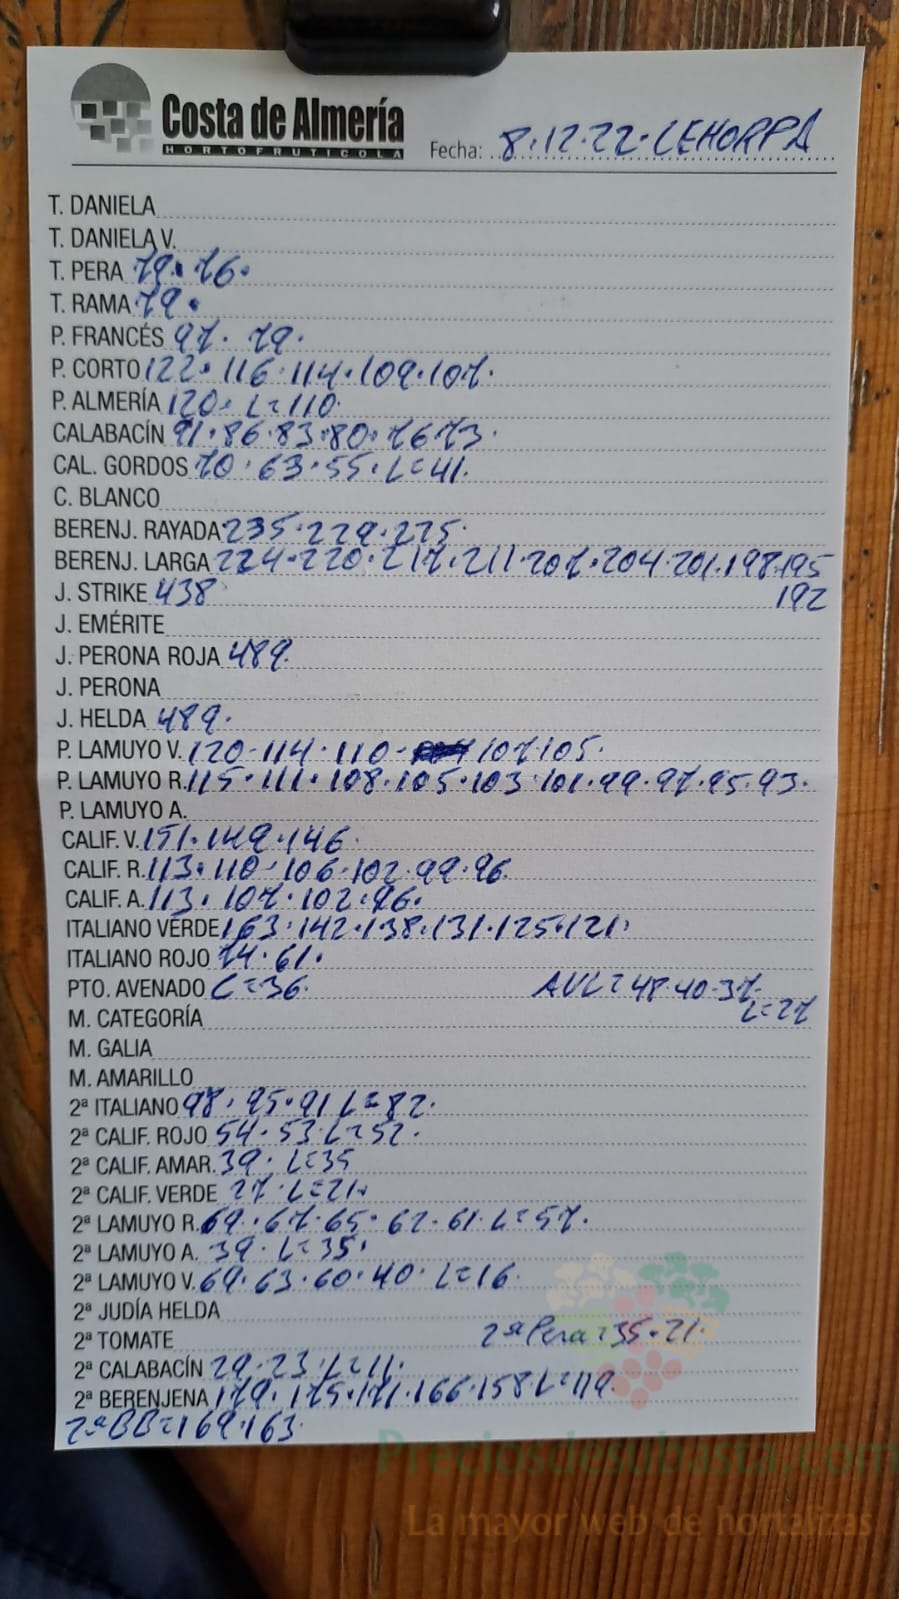 Costa de Almería
HORTOFRUTICOLA
Fecha: 8.12.22. LEHORPA
T. DANIELA
T. DANIELA V.
T. PERA 79. 76.
T. RAMA 79.
P. FRANCÉS 97. 79.
P. CORTO 122. 116. 114. 109. 107.
P. ALMERÍA 120. L=110.
CALABACÍN 91. 86. 83. 80. 76. 73.
CAL. GORDOS 70. 63. 55. L=41.
C. BLANCO
BERENJ. RAYADA 235. 229. 225.
BERENJ. LARGA 224. 220. 217. 211. 207. 204. 201. 198. 195
192
J. STRIKE 438
J. EMÉRITE
J. PERONA ROJA 489.
J. PERONA
J. HELDA 489.
P. LAMUYO V. 120. 114. 110. 107. 105.
P. LAMUYO R. 115. 111. 108. 105. 103. 101. 99. 97. 95. 93.
P. LAMUYO A.
CALIF. V. 151. 149. 146.
CALIF. R. 113. 110. 106. 102. 99. 96.
CALIF. A. 113. 107. 102. 96.
ITALIANO VERDE 163. 142. 138. 131. 125. 121.
ITALIANO ROJO 74. 61.
PTO. AVENADO C=36. AVL= 48. 40. 37.
L=27
M. CATEGORÍA
M. GALIA
M. AMARILLO
2ª ITALIANO 98. 95. 91 L=82.
2ª CALIF. ROJO 54. 53. L=52.
2ª CALIF. AMAR. 39. L=35
2ª CALIF. VERDE 27. L=21.
2ª LAMUYO R. 69. 67. 65. 62. 61. L=57.
2ª LAMUYO A. 39. L=35.
2ª LAMUYO V. 69. 63. 60. 40. L=16.
2ª JUDÍA HELDA
2ª TOMATE 2ª Pera=35. 21.
2ª CALABACÍN 29. 23. L=11.
2ª BERENJENA 179. 175. 171. 166. 158 L=119.
2ª BB=169. 163.
Preciosdesubasta.com
La mayor web de hortalizas